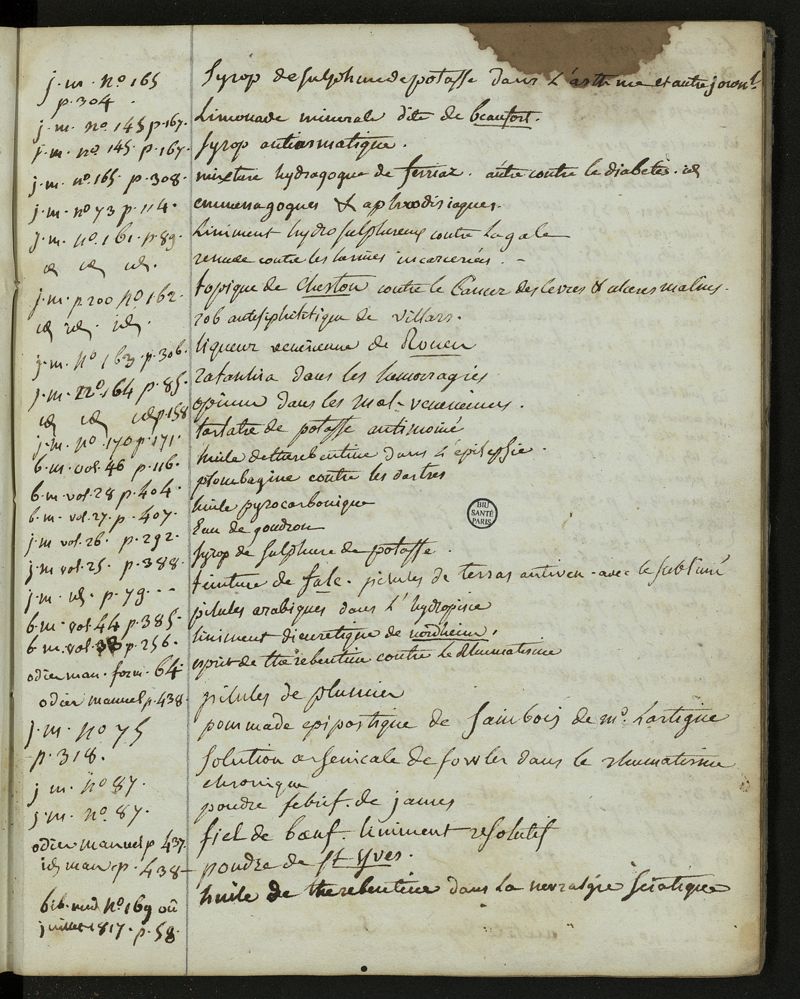 j. m. nº 165 Syrop de sulphure de potasse dans l'asthme et autre
p. 304.
j. m. nº 145 p. 167. Limonade minerale dite de beaufort.
j. m. nº 145 p. 167. Syrop antiasmatique.
j. m. nº 165 p. 308. mixture hydragogue de ferriar. autre contre le diabetes. id
j. m. nº 73 p. 114. emmenagogues & aphrodisiaques.
j. m. nº 161. p. 89. Liniment hydrosulphureux contre la gale
id id id. remede contre les hernies incarcerées. -
j. m. p. 200 nº 162. topique de Cheston contre le Cancer des levres & ulceres malins.
id id. id. rob antisiphilitique de villars.
j. m. nº 163 p. 306. liqueur venerienne de Rouen
j. m. nº 164 p. 85. ratanhia dans les hemorragies
id id id p. 158 opium dans les mal. veneriennes.
j. m. nº 170 p. 171. tartatre de potasse antimonié
b. m. vol. 46 p. 116. huile de therebentine dans l'epilepsie.
b. m. vol. 28 p. 404. plombagine contre les dartres
b. m. vol. 27. p. 407. huile pyrocarbonique
j. m. vol. 26. p. 292. Eau de goudron
j. m. vol. 25. p. 388. syrop de sulphure de potasse.
j. m. id. p. 79 - - - teinture de . pilules de terras antiven. avec le sublimé
b. m. vol. 44 p. 385. pilules arabiques dans l'hydropisie
b. m. vol. 38 p. 256. liniment diuretique de nordheim.
odier man. form. 64 esprit de therebentine contre le Rhumatisme
odier manuel p. 438. pilules de plumier
j. m. nº 75 pommade epipastique de Sainbois de mº. Lartigue
p. 318. Solution arsenicale de fowler dans le rhumatisme
chronique
j. m. nº 87. poudre febrif. de james
j. m. nº. 87. fiel de bœuf. liniment resolutif
odier manuel p. 437. poudre de St Yves.
id man. p. 438 - huile de therebentine dans la nevralgie sciatique
bib. med nº 169 où
juillet 1817. p. 58.
BIU
SANTÉ
PARIS